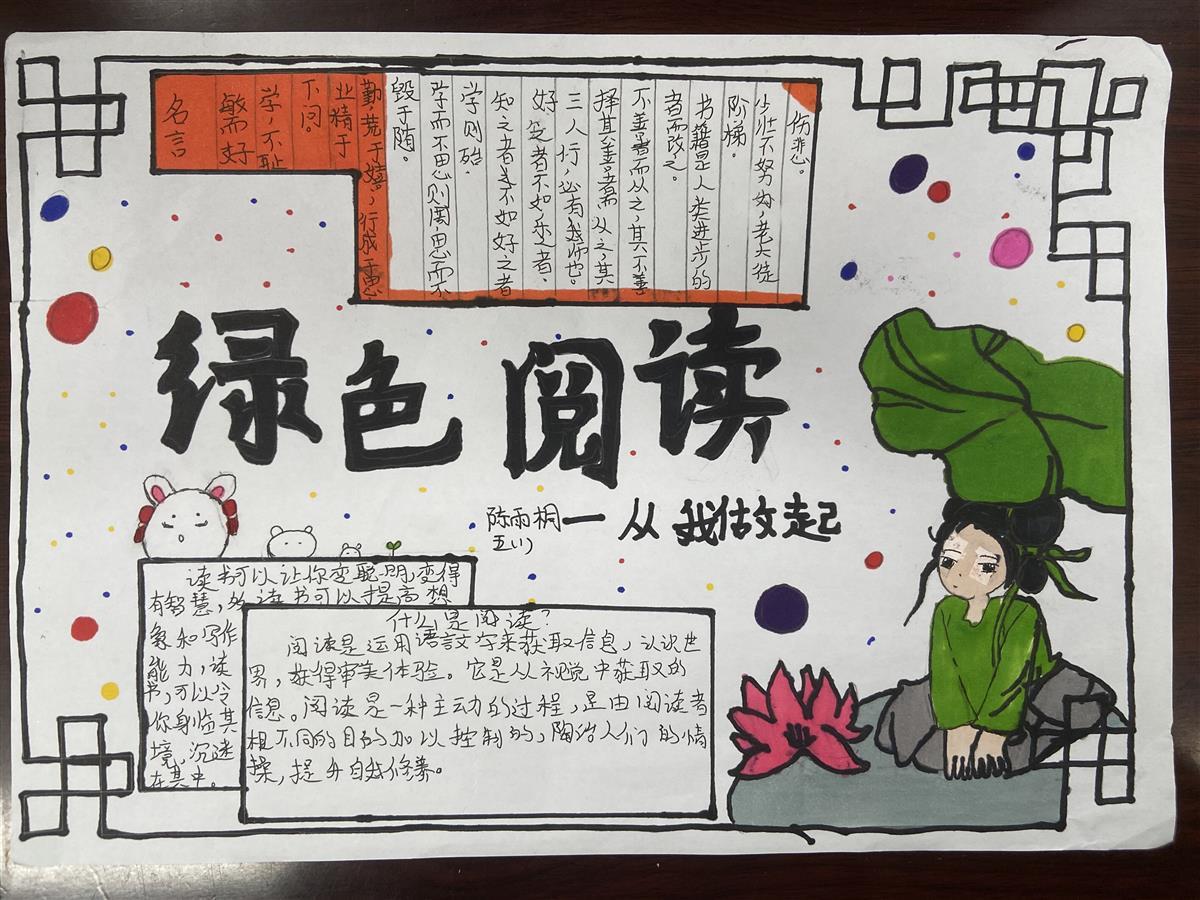 名言
敏而好
学，不耻
下问。
业精于
勤，荒于嬉，行成于思
毁于随。
学而不思则罔，思而不
学则殆。
知之者不如好之者
好之者不如乐之者。
三人行，必有我师也。
择其善者而从之，其
不善者而从之，其不善
者而改之。
书籍是人类进步的
阶梯。
少壮不努力，老大徒
伤悲。
绿色阅读
陈雨桐
五（1）
一从我做起
读书可以让你变聪明，变得
有智慧，读书可以提高想
象和写作
能力，读
书，可以令
你身临其
境，沉迷
在其中。
什么是阅读？
阅读是运用语言文字来获取信息，认识世
界，获得审美体验。它是从视觉中获取的
信息。阅读是一种主动的过程，是由阅读者
根不同的目的加以控制的，陶冶人们的情
操，提升自我修养。